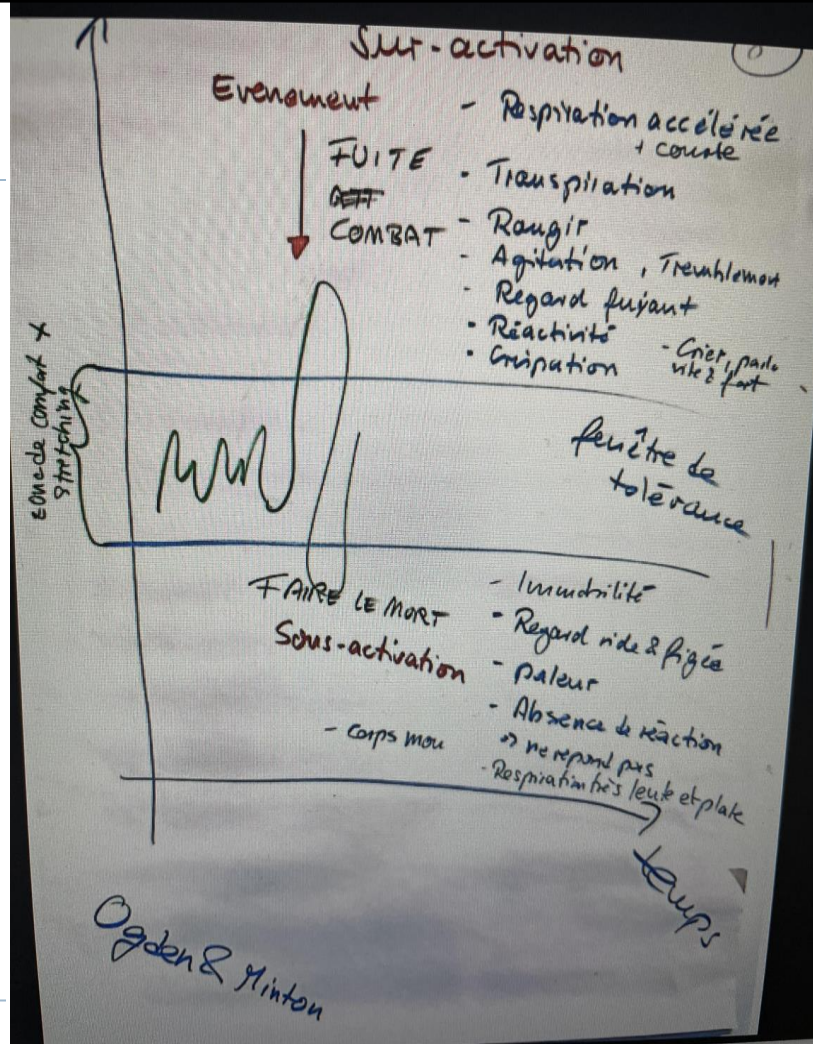 Sur-activation
Evenement
FUITE
COMBAT
- Respiration accélérée
+ courte
- Transpiration
- Rougir
- Agitation, Tremblement
- Regard fuyant
- Réactivité
- Crispation
- Crier, parle
vite & fort
zone de comfort +
stretching
fenêtre de
tolérance
FAIRE LE MORT
Sous-activation
- Corps mou
- Immobilité
- Regard vide & figée
- paleur
- Absence de réaction
ne répond pas
- Respiration très lente et plate
temps
Ogden & Minton